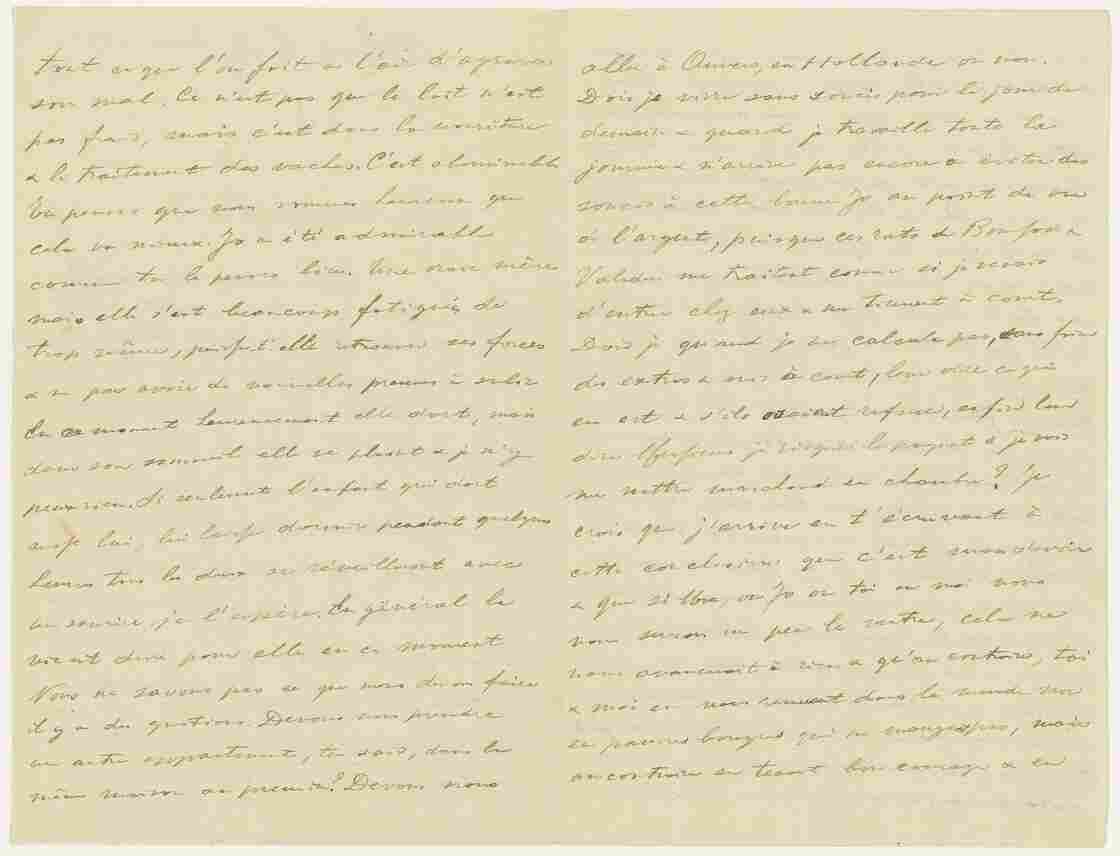 tout ce que l'on fait a l'air d'agraver
son mal. Ce n'est pas que le lait n'est
pas frais, mais c'est dans la nourriture
& le traitement des vaches. C'est abominable
Tu penses que nous sommes heureux que
cela va mieux. Jo a été admirable
comme tu le penses bien. Une vraie mère
mais elle s'est beaucoup fatiguée, de
trop même, puisse-t-elle retrouver ses forces
& ne pas avoir de nouvelles preuves à subir
En ce moment heureusement elle dort, mais
dans son sommeil elle se plaint & je n'y
peux rien. Si seulement l'enfant qui dort
aussi lui, lui laisse dormir pendant quelques
heures tous les deux se réveilleront avec
un sourire, je l'espère. En général la
vie est dure pour elle en ce moment
Nous ne savons pas ce que nous devons faire
il y a des questions. Devons nous prendre
un autre appartement, tu sais, dans la
même maison au premier? Devons nous
aller à Auvers, en Hollande ou non.
Dois je vivre sans soucis pour le jour de
demain & quand je travaille toute la
journée n'arrive pas encore à éviter des
soucis à cette bonne Jo au point de vue
de l'argent, puisque ces rats de Boussod &
Valadon me traitent comme si je venais
d'entrer chez eux & me tiennent à court.
Dois je quand je ne calcule pas, sans faire
des extras & suis à court, leur dire ce qu'il
en est & s'ils osaient refuser, enfin leur
dire Messieurs je risque le paquet & je vais
me mettre marchand en chambre? Je
crois que j'arrive en t'écrivant à
cette conclusion que c'est mon devoir
& que si Moe, ou Jo ou toi ou moi nous
nous serrons un peu le ventre, cela ne
nous avancerait à rien & qu'au contraire, toi
& moi en nous remuant dans le monde non
en pauvres bougres qui ne mangent pas, mais
au contraire en tenant bon courage & en